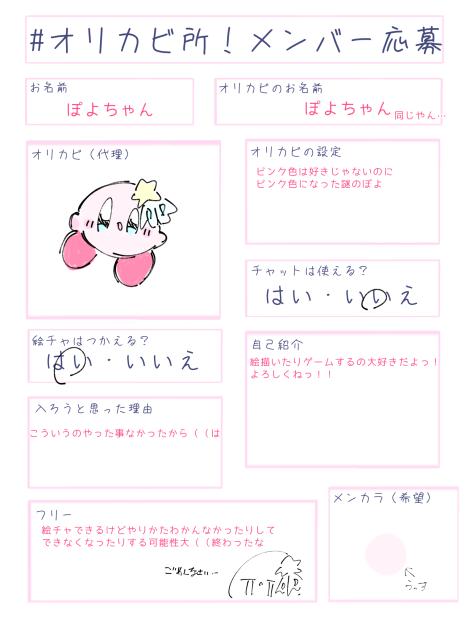 #オリカビ所！メンバー応募
お名前
ぽよちゃん
オリカビのお名前
ぽよちゃん 同じやん…
オリカビ（代理）
オリカビの設定
ピンク色は好きじゃないのに
ピンク色になった謎のぽよ
チャットは使える？
はい・いいえ
絵チャはつかえる？
はい・いいえ
自己紹介
絵描いたりゲームするの大好きだよっ！
よろしくねっ！！
入ろうと思った理由
こういうのやった事なかったから（（は
フリー
絵チャできるけどやりかたわかんなかったりして
できなくなったりする可能性大（（終わったな
ごめんなさい…
メンカラ（希望）
うっす